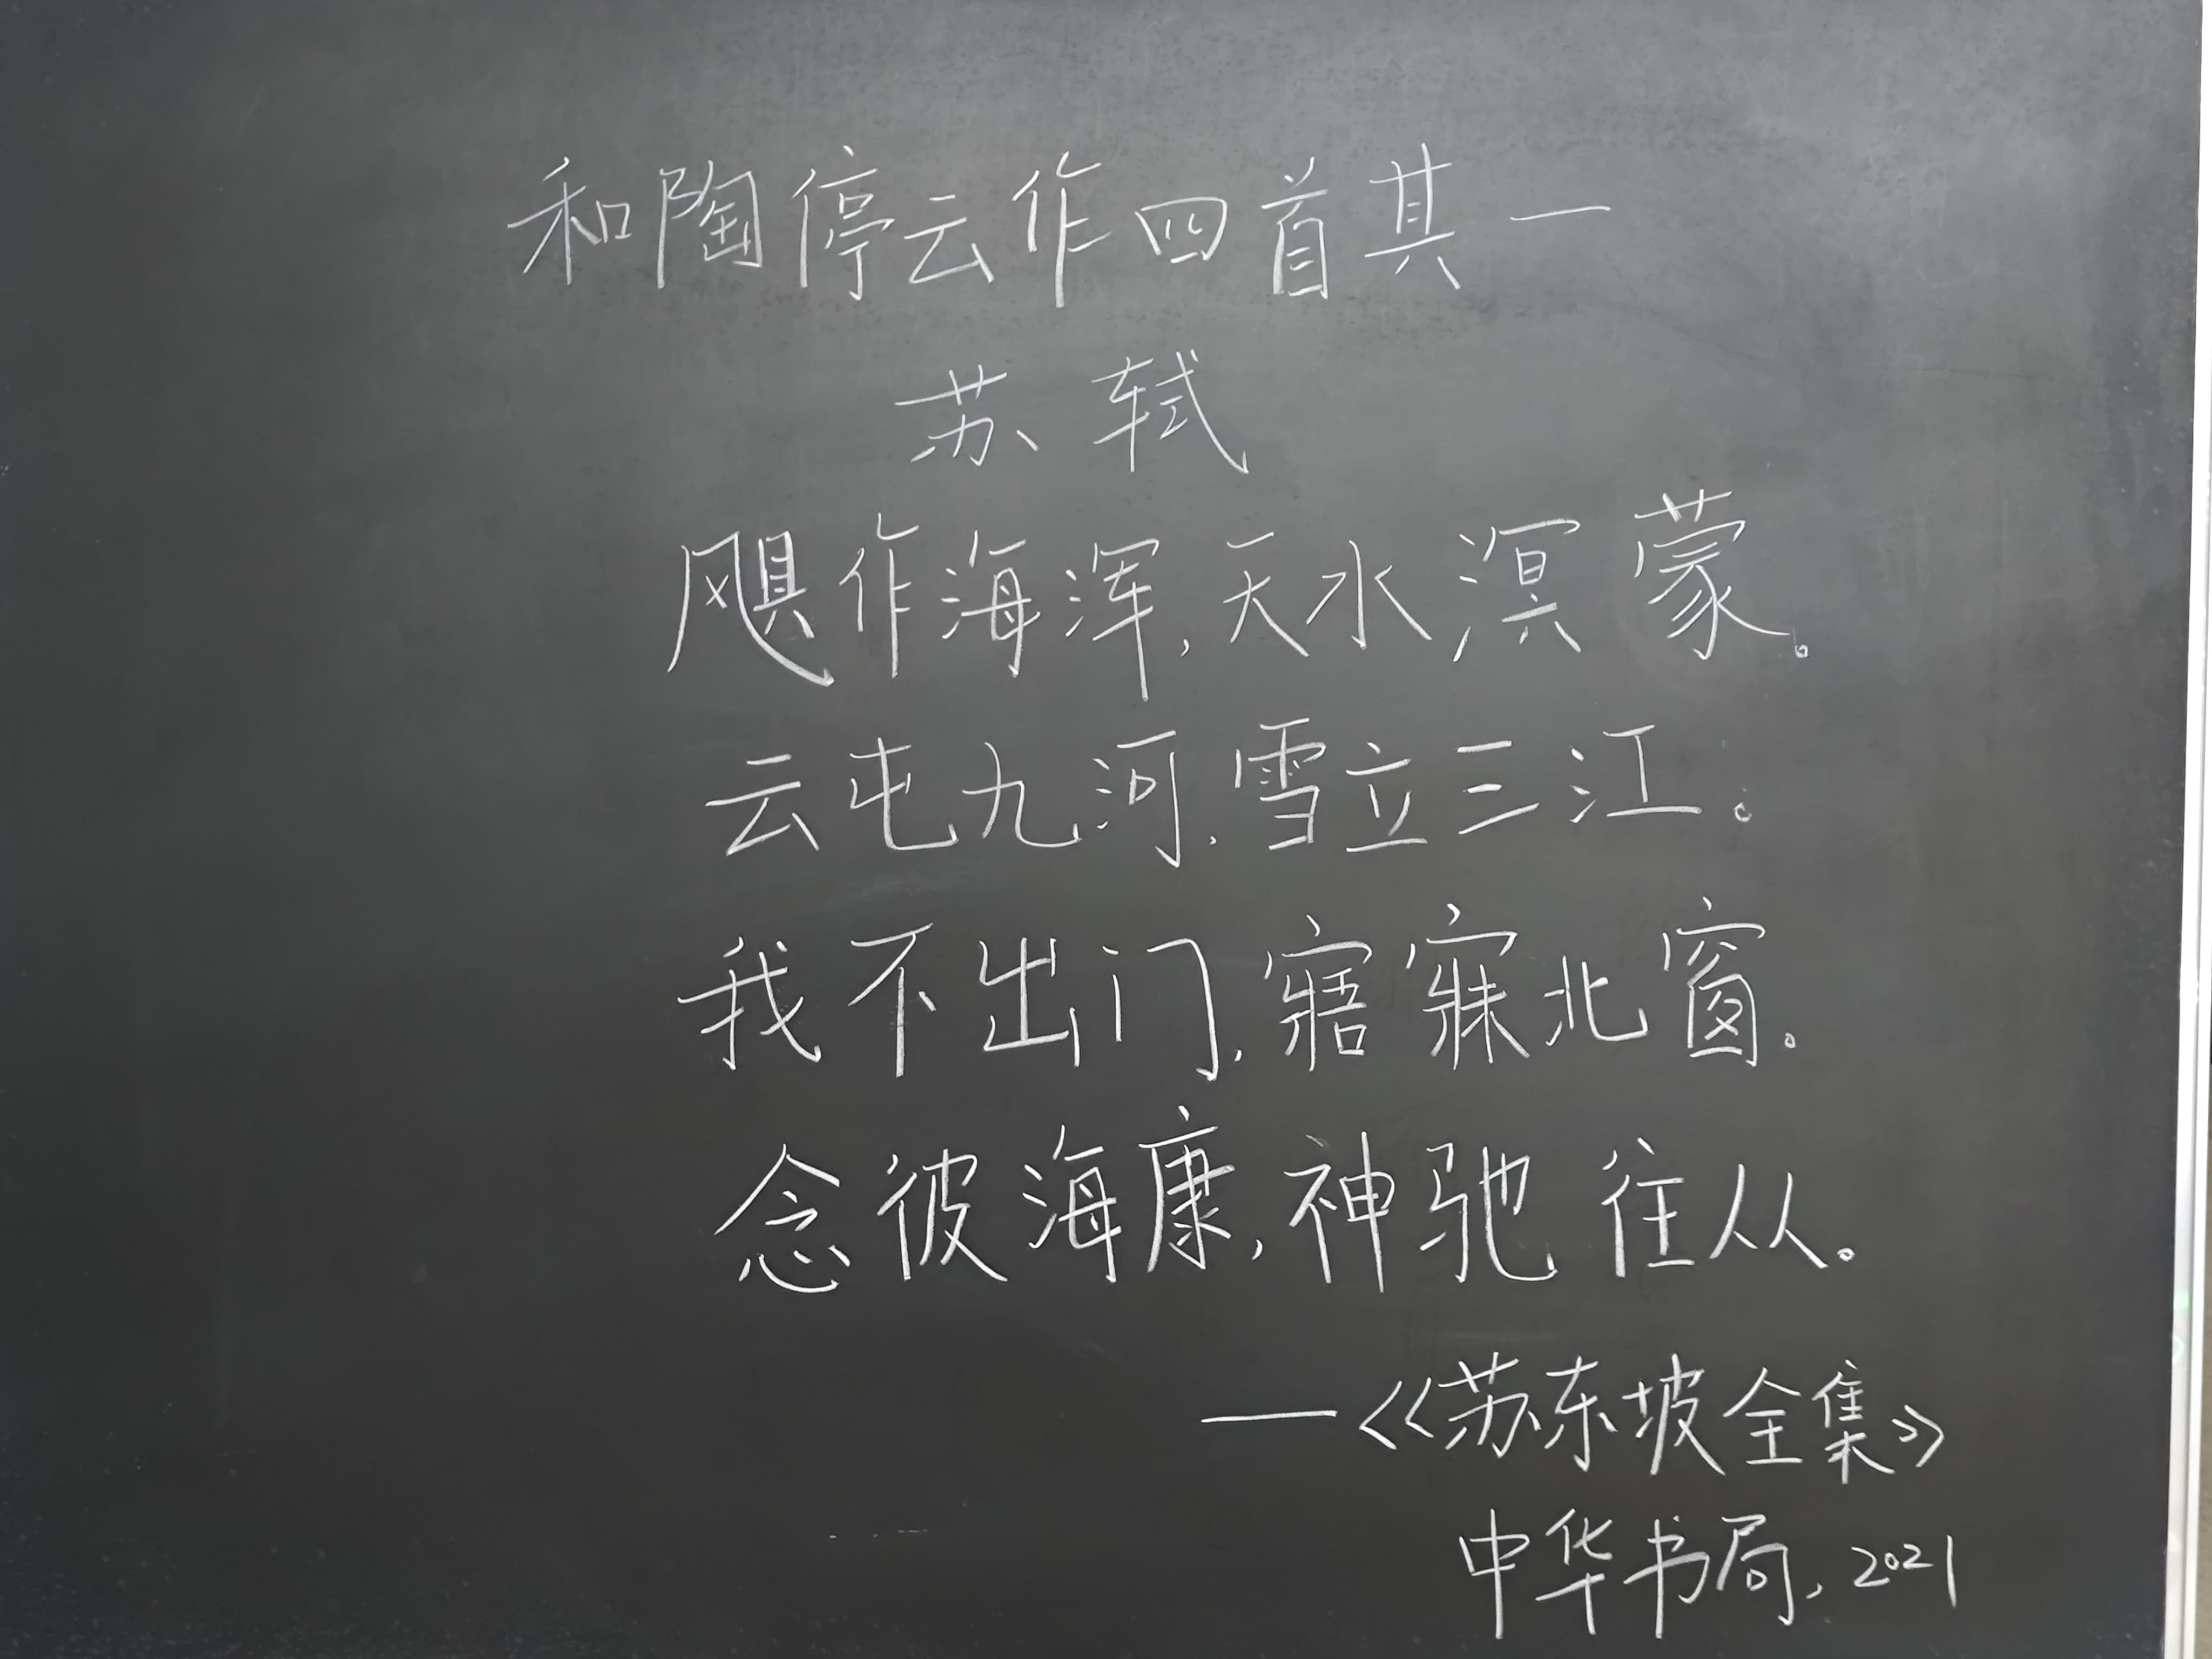 和陶停云作四首其一
苏轼
飓作海浑,天水溟蒙。
云屯九河,雪立三江。
我不出门,寤寐北窗。
念彼海康,神驰往从。
—《苏东坡全集》
中华书局,2021